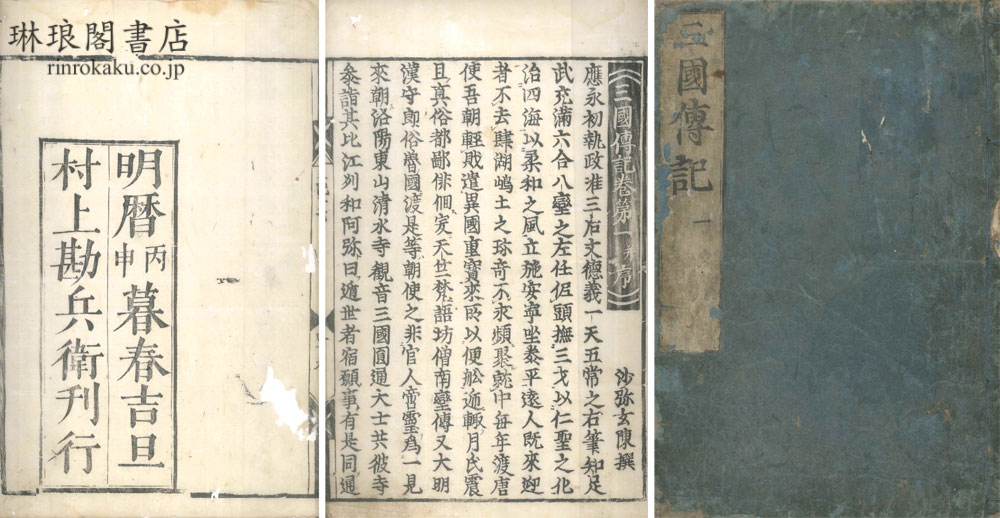 琳琅閣書店
rinrokaku.co.jp
三國傳記 一
三國傳記卷第一并序
沙弥玄棟撰
應永初執政准三后文德義一天五常之右筆知足
武充滿六合八蠻之左衽但頭撫三才以仁聖之化
治四海以柔和之風立施安寧坐泰平遠人既來迎
者不去肆湖嶋土之珎奇不求頻聚就中每年渡唐
使吾朝輕賎遣異國重寶來所以便舩迩輙月氏震
且真俗都鄙徘徊爰天竺梵語坊僧南蠻傳又大明
漢守郎俗嘗國渡是等朝使之非官人啻靈為一見
來朝洛陽東山清水寺觀音三國圓通大士共彼寺
叅詣其比江刕和阿弥曰遁世者宿願事有是同通
明暦丙申暮春吉旦
村上勘兵衛刊行